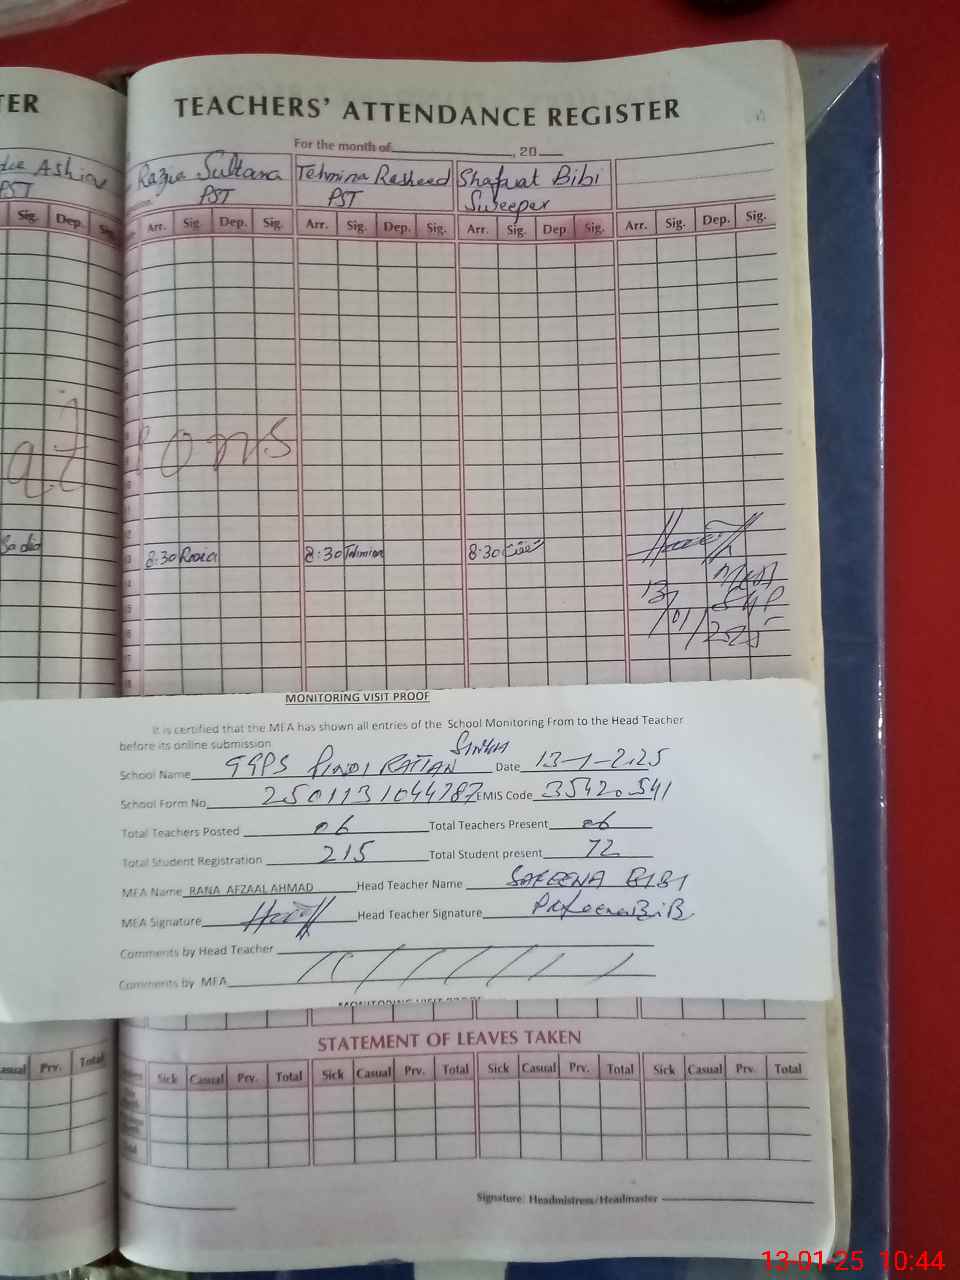 TER
TEACHERS' ATTENDANCE REGISTER
For the month of , 20
Ashiq
PST
Razia Sultana
PST
Tehmina Rasheed
PST
Shafqat Bibi
Sweeper
Sig. Dep. Sig.
Arr. Sig. Dep. Sig. Arr. Sig. Dep. Sig. Arr. Sig. Dep Sig. Arr. Sig. Dep. Sig.
ons
Sadia
8:30 Razia 8:30 Tehmina 8:30
13/01/2025
MONITORING VISIT PROOF
It is certified that the MEA has shown all entries of the School Monitoring From to the Head Teacher
before its online submission
School Name GGPS PINDI RATTAN SINGH Date 13-1-2025
School Form No 2501131044787 EMIS Code 35420541
Total Teachers Posted 06 Total Teachers Present 06
Total Student Registration 215 Total Student present 72
MEA Name RANA AFZAAL AHMAD Head Teacher Name SAFEENA BIBI
MEA Signature Head Teacher Signature
Comments by Head Teacher
Comments by MEA
MONITORING VISIT PROOF
STATEMENT OF LEAVES TAKEN
Casual Prv. Total
Sick Casual Prv. Total Sick Casual Prv. Total Sick Casual Prv. Total Sick Casual Prv. Total
Signature: Headmistress/Headmaster
13-01-25 10:44